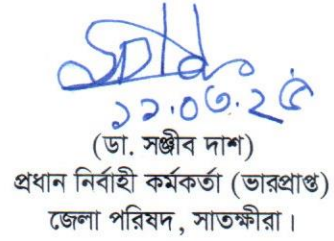 ১১.০৩.২৫
(ডা. সঞ্জীব দাশ)
প্রধান নির্বাহী কর্মকর্তা (ভারপ্রাপ্ত)
জেলা পরিষদ, সাতক্ষীরা।